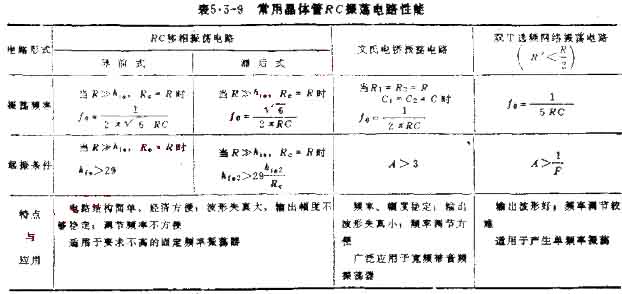 表5·3-9 常用晶体管RC振荡电路性能
电路形式
RC移相振荡电路
导前式
滞后式
文氏电桥振荡电路
双T选频网络振荡电路
(R'<R/2)
振荡频率
当R≫hie，Rc=R时
f0=1/(2π√6 RC)
当R≫hie，Rc=R时
f0=√6/(2πRC)
当R1=R2=R
C1=C2=C时
f0=1/(2πRC)
f0=1/(5RC)
起振条件
当R≫hie，Rc=R时
hfe>29
当R≫hie，Rc=R时
hfe2>29 hie2/Rc
A>3
A>1/F
特点
与
应用
电路结构简单，经济方便；波形失真大，输出幅度不
够稳定；调节频率不方便
适用于要求不高的固定频率振荡器
频率、幅度稳定；输出
波形失真小；频率调节方
便
广泛应用于宽频带音频
振荡器
输出波形好；频率调节较
难
适用于产生单频率振荡